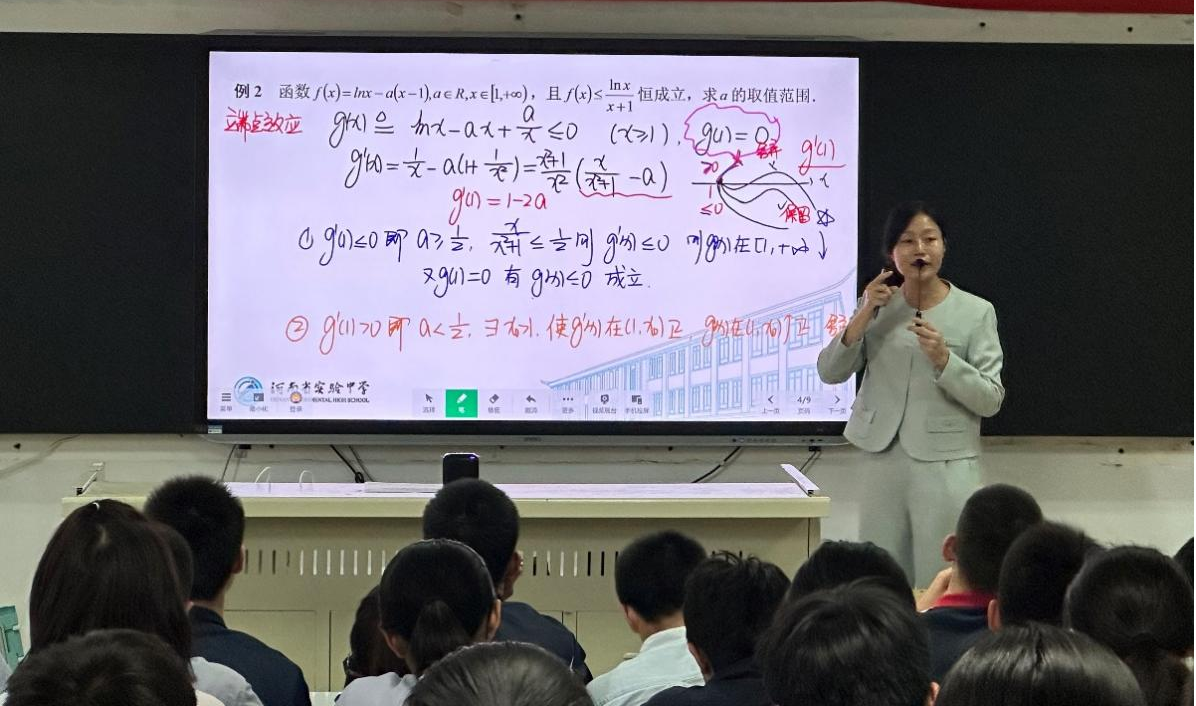 例 2 函数 f(x)=lnx-a(x-1),a∈R,x∈[1,+∞)，且 f(x)≤lnx/(x+1) 恒成立，求 a 的取值范围.
端点效应
g(x) ≜ lnx-ax+a/x ≤0 (x≥1). g(1)=0
g'(x)=1/x-a(1+1/x²)=(x²+1)/x²(x/(x²+1)-a)
g'(1)
>0
1
≤0
g'(1)=1-2a
① g'(1)≤0 即 a≥1/2. x/(x²+1)≤1/2 则 g'(x)≤0 则g(x)在[1,+∞)↓
又g(1)=0 有 g(x)≤0 成立.
② g'(1)>0 即 a<1/2. ∃x₀>1. 使g'(x)在(1,x₀)正 g(x)在(1,x₀)↑正
河南省实验中学
菜单 最小化 登录 选择 笔 橡皮 撤消 更多 投屏 手机投屏 上一页 4/9 页码 下一页